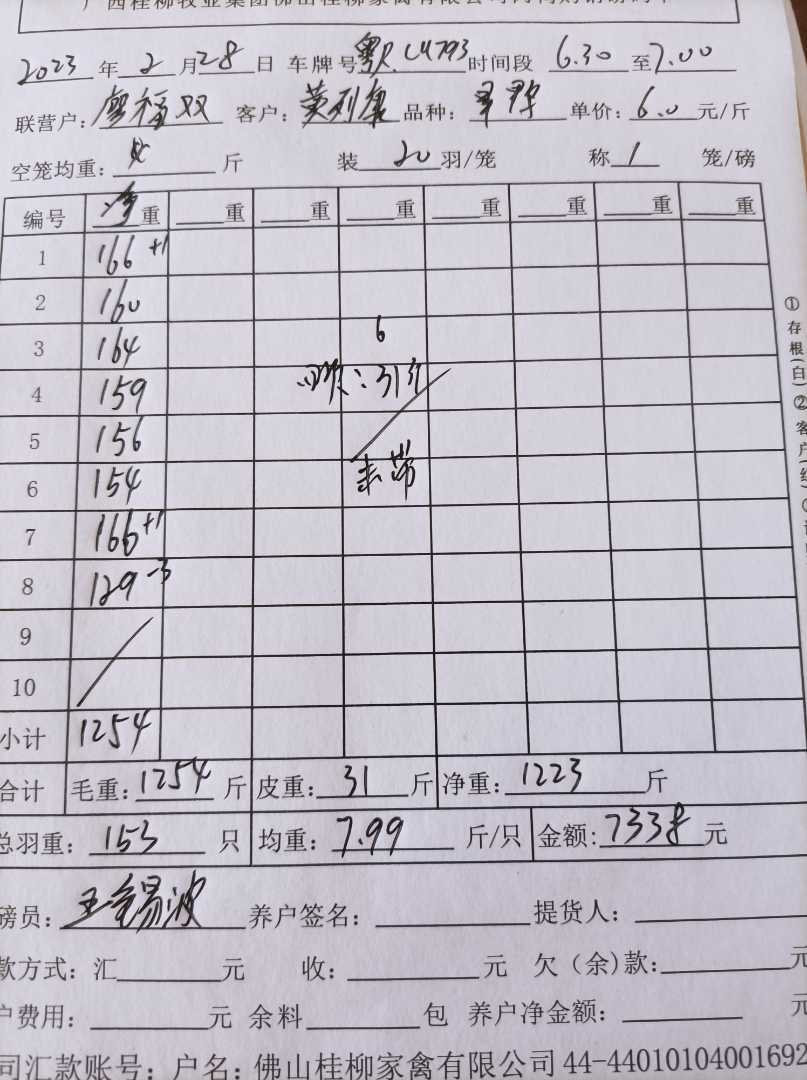 2023 年 2 月 28 日 车牌号 粤R.LU793 时间段 6.30 至 7.00
联营户: 廖福双 客户: 黄列集 品种: 单价: 6.0 元/斤
空笼均重: 斤 装 20 羽/笼 称 1 笼/磅
编号 净重 重 重 重 重 重 重 重
1 166 +1
2 160
3 164 6
4 159 :31斤
5 156
6 154
7 166 +1
8 129 -3
9
10
小计 1254
合计 毛重: 1254 斤 皮重: 31 斤 净重: 1223 斤
总羽重: 153 只 均重: 7.99 斤/只 金额: 7338 元
磅员: 王锡波 养户签名: 提货人:
款方式: 汇 元 收: 元 欠(余)款: 元
户费用: 元 余料 包 养户净金额: 元
司汇款账号: 户名: 佛山桂柳家禽有限公司 44-44010104001692
①存根(白)②客户(红)